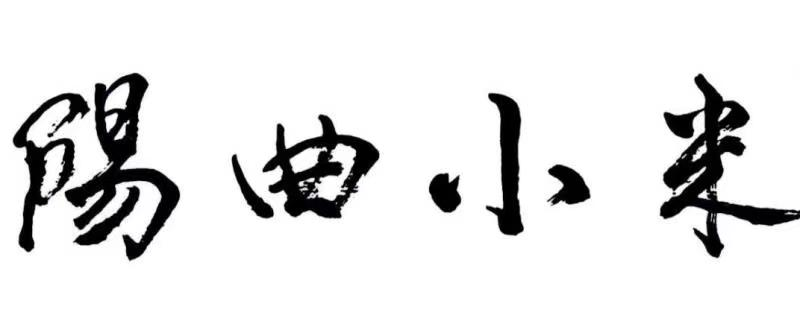 陽曲小米